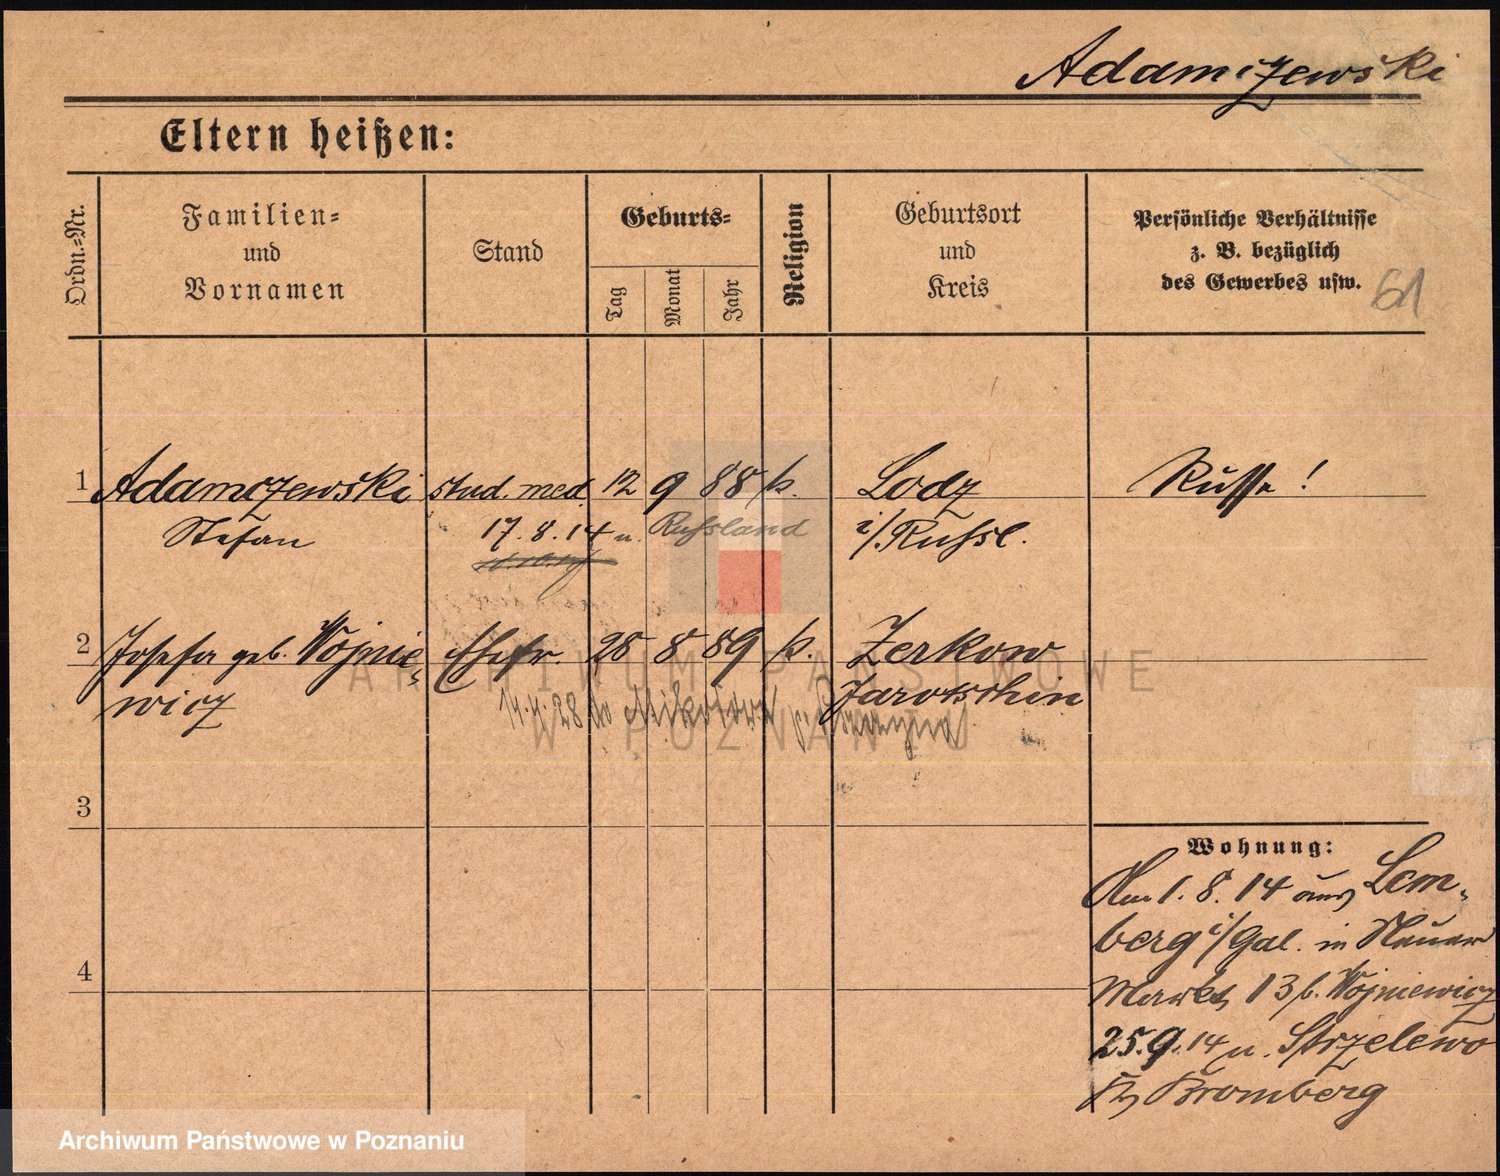 Adamczewski
Eltern heißen:
Ordn.=Nr.
Familien=
und
Vornamen
Stand
Geburts=
Tag
Monat
Jahr
Religion
Geburtsort
und
Kreis
Persönliche Verhältnisse
z. B. bezüglich
des Gewerbes usw.
61
1 Adamczewski stud. med. 12 9 88 k. Lodz Russe!
Stefan 17. 8. 14 n. Russland i/Russl.
2 Josefa geb. Wojnie= Ehefr. 28 8 89 k. Zerkow
wicz Jarotschin
14.4.28 do
ARCHIWUM PAŃSTWOWE
W POZNANIU
3
4
Wohnung:
Am 1. 8. 14 aus Lem=
berg i/Gal. in Neuer
Markt 13 b. Wojniewicz
25. 9. 14 n. Strzelewo
Kr. Bromberg
Archiwum Państwowe w Poznaniu